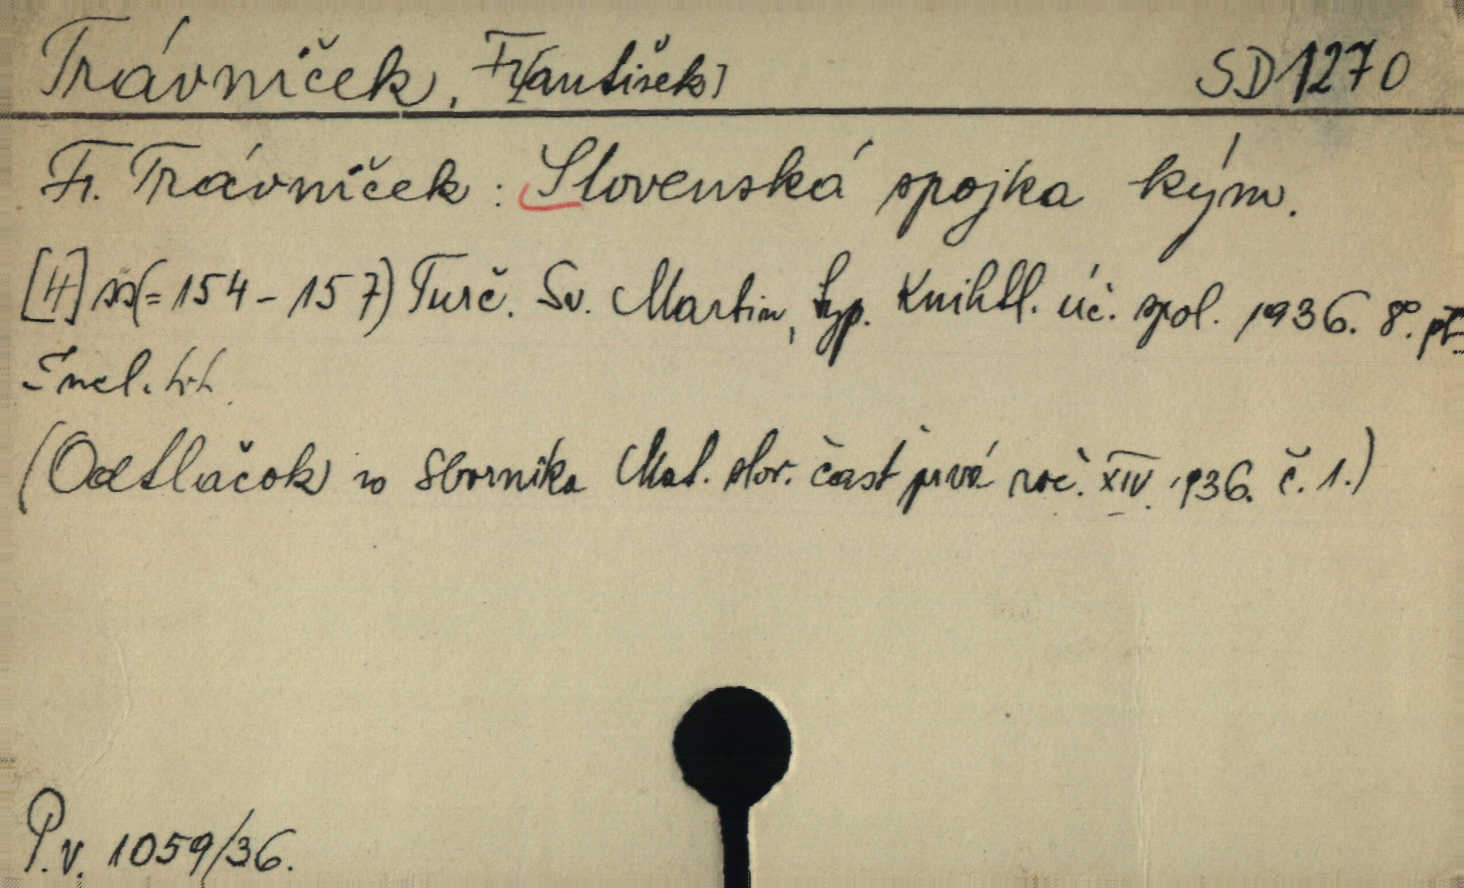 Trávníček, Fr[antišek] SD 1270
Fr. Trávníček: Slovenská spojka kým.
[4] ss (= 154-157) Turč. Sv. Martin, typ. Knihtl. úč. spol. 1936. 8°. pt.
Incl. tit.
(Odtlačok zo Sborníka Mat. slov. časť prvá roč. XIV. 1936. č. 1.)
P.v. 1059/36.